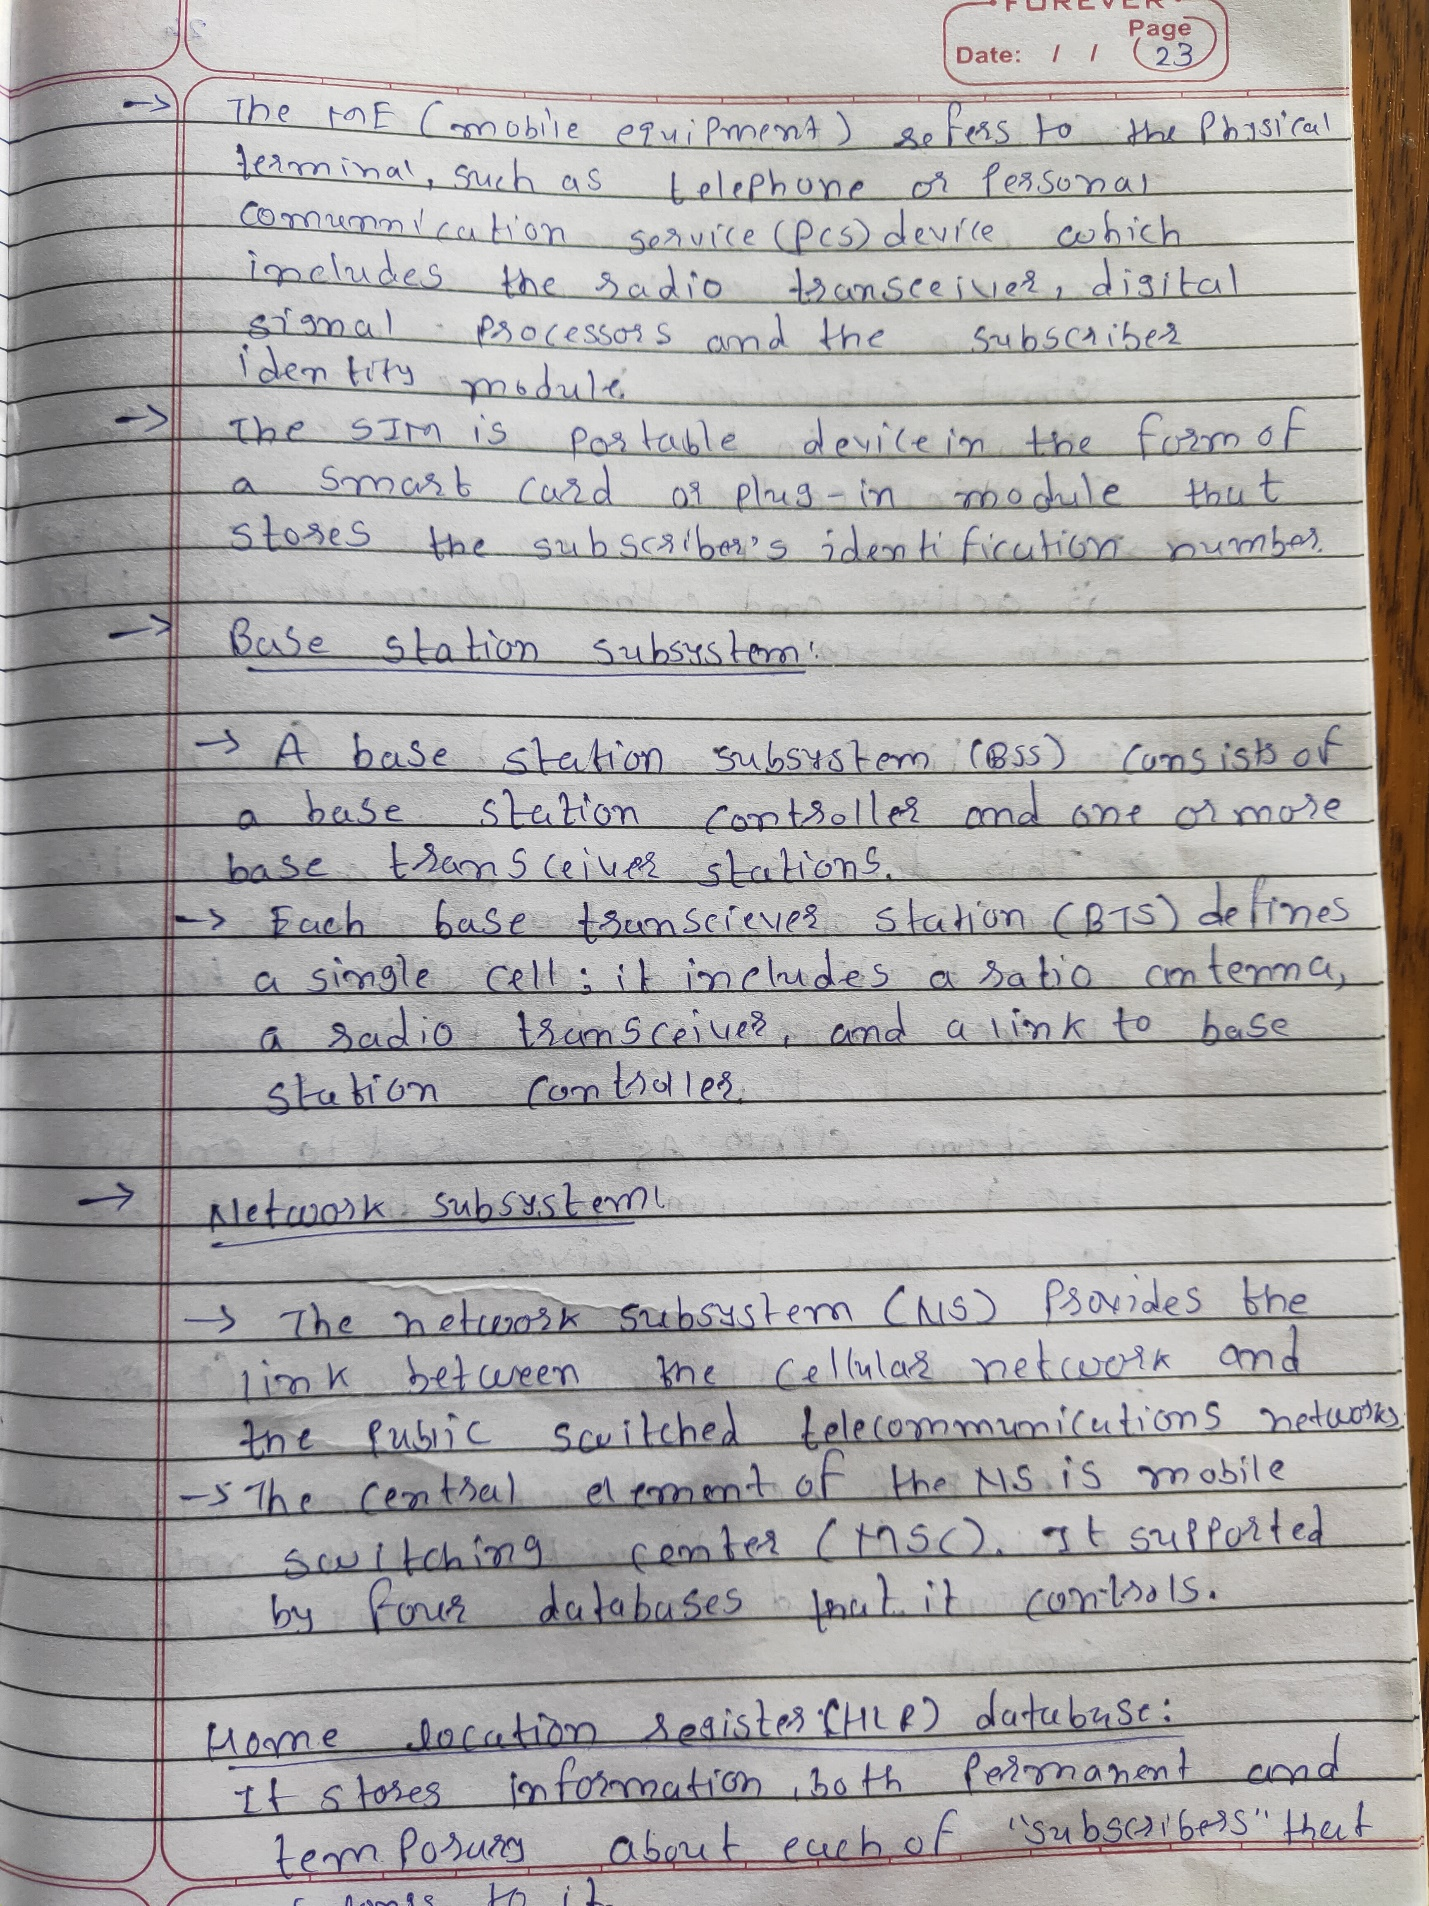 FOREVER
Page
Date: / / 23
→ The ME (mobile equipment) refers to the Physical
terminal, such as telephone or Personal
comumnication service (PCS) device which
includes the radio transceiver, digital
signal processors and the subscriber
identity module.
→ The SIM is portable device in the form of
a smart card or plug-in module that
stores the subscriber's identification number.
→ Base station subsystem:
→ A base station subsystem (BSS) consists of
a base station controller and one or more
base transceiver stations.
→ Each base transciever station (BTS) defines
a single cell; it includes a ratio antenna,
a radio transceiver, and a link to base
station controller.
→ Network subsystem:
→ The network subsystem (NS) Provides the
link between the cellular network and
the public switched telecommunications networks
→ The central element of the NS is mobile
switching center (MSC). It supported
by four databases that it controls.
Home location register (HLR) database:
It stores information, both Permanent and
temporary about each of "subscribers" that
to it